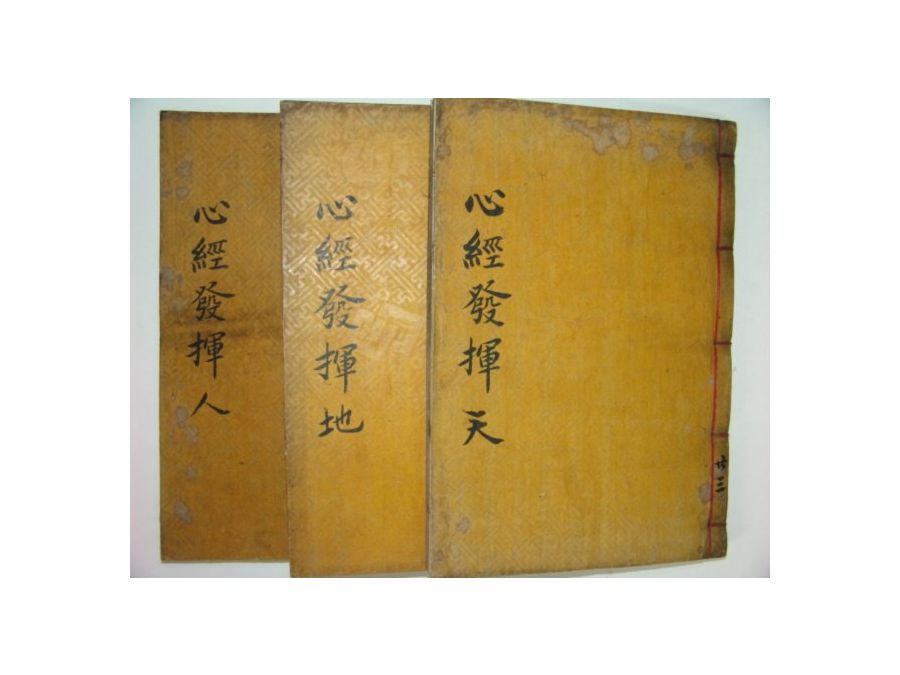 心經發揮 天
共三
心經發揮 地
心經發揮 人